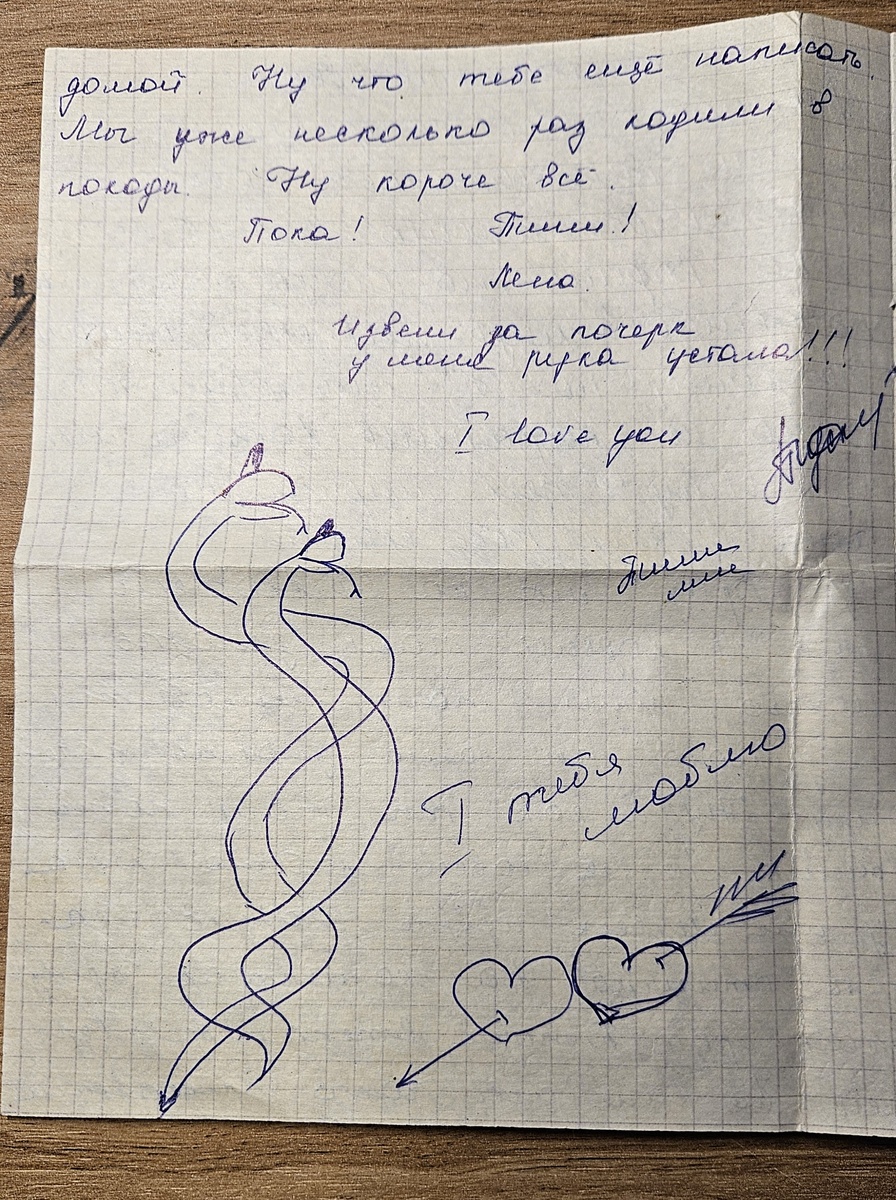 домой. Ну что тебе ещё написать.
Мы уже несколько раз ходили в
походы. Ну короче всё.
Пока! Пиши!
Лена.
Извени за почерк
у меня рука устала!!!
I love you
Пиши
мне
I тебя
люблю